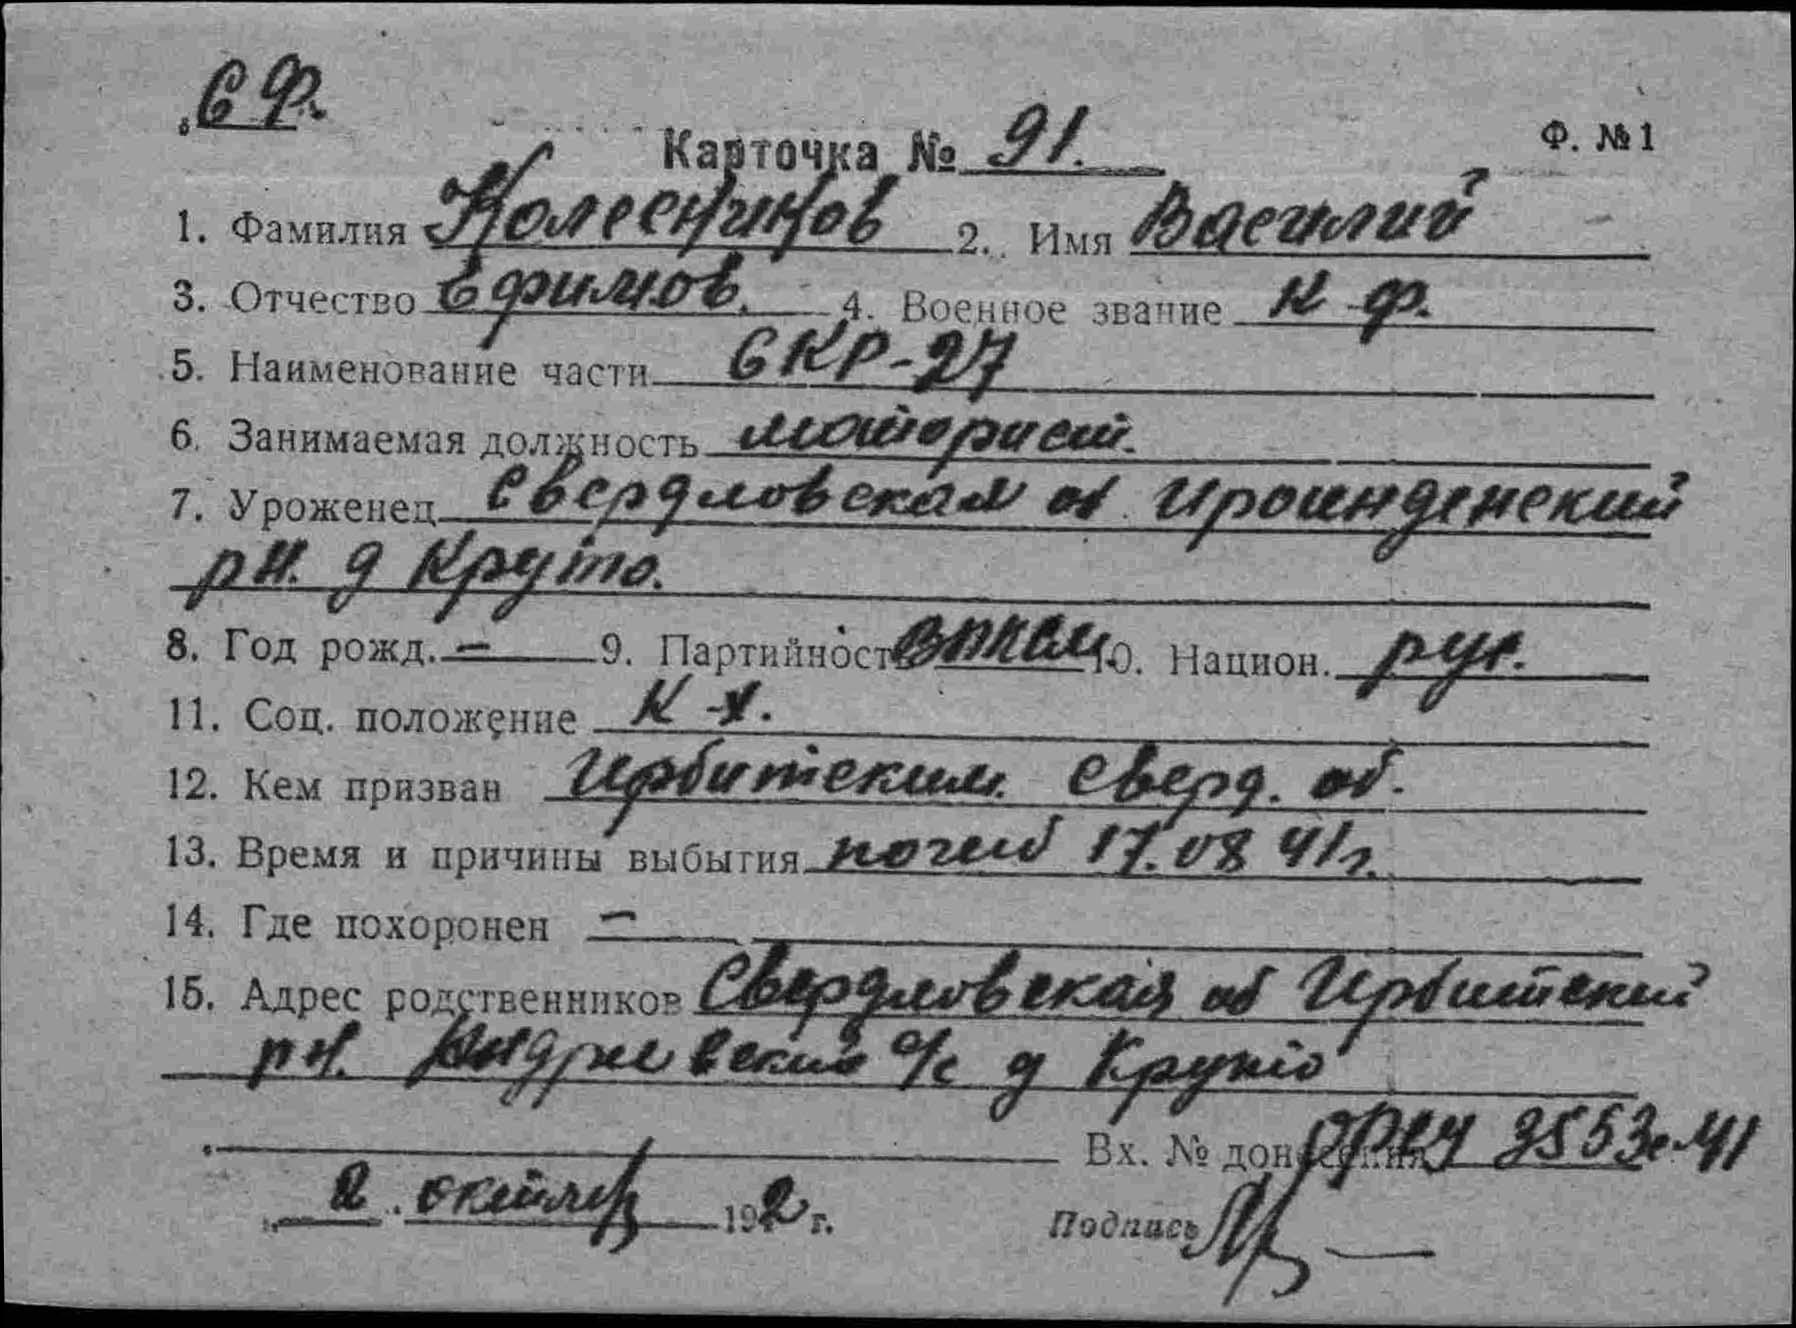 СФ.
Карточка № 91. Ф. № 1
1. Фамилия Колесников 2. Имя Василий
3. Отчество Ефимов. 4. Военное звание К-ф.
5. Наименование части СКР-27
6. Занимаемая должность моторист.
7. Уроженец Свердловская об
рн. д Круто.
8. Год рожд. – 9. Партийность ВЛКСМ 10. Национ. рус.
11. Соц. положение К-х.
12. Кем призван Ирбитским. Сверд. об.
13. Время и причины выбытия погиб 17.08 41г.
14. Где похоронен –
15. Адрес родственников Свердловская об Ирбитский
рн. с/с д Круто
Вх. № донесения 3553с-41
2. октября 1942 г. Подпись